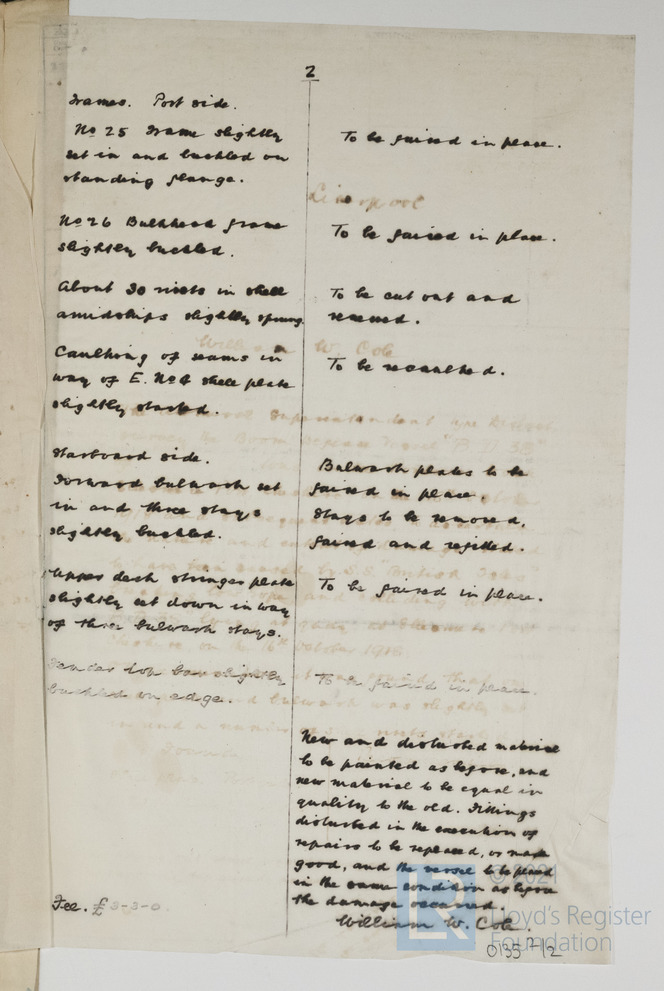 2
Frames. Port side.
No 25 Frame slightly
set in and buckled on
standing flange.
To be faired in place.
No 26 Bulkhead frame
slightly buckled.
Liverpool
To be faired in place.
About 30 rivets in shell
amidships slightly sprung.
To be cut out and
renewed.
William W. Cole
Caulking of seams in
way of E. No 4 shell plate
slightly started.
To be recaulked.
Starboard side.
Forward bulwark set
in and three stays
slightly buckled.
Bulwark plates to be
faired in place.
Stays to be removed,
faired and refitted.
Upper deck stringer plate
slightly set down in way
of three bulwark stays.
To be faired in place.
on the 16th October 1918
Fender top bar slightly
buckled on edge.
To be faired in place.
New and disturbed material
to be painted as before, and
new material to be equal in
quality to the old. Fittings
disturbed in the execution of
repairs to be replaced, or made
good, and the vessel to be placed
in the same condition as before
the damage occurred.
William W. Cole.
Fee. £3-3-0
© 2021
LR
Lloyd's Register
Foundation
0135 2/2